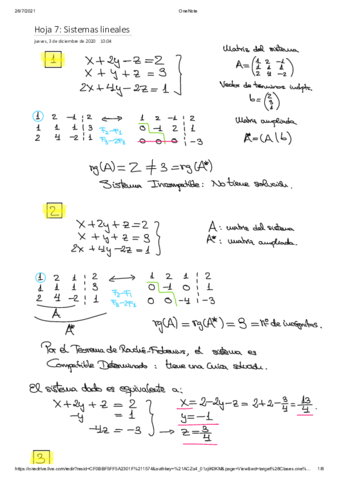 28/7/2021 OneNote
Hoja 7: Sistemas lineales
jueves, 3 de diciembre de 2020 10:04
1
x+2y-z=2
x+y+z=3
2x+4y-2z=1
Matriz del sistema
A=(1 2 -1 1 1 1 2 4 -2)
Vector de términos indpts.
b=(2 3 1)
Matriz ampliada
A*=(A|b)
1 2 -1 | 2 ↔ 1 2 -1 | 2
1 1 1 | 3 F2-F1 0 -1 2 | 1
2 4 -2 | 1 F3-2F1 0 0 0 | -3
rg(A)=2≠3=rg(A*)
Sistema Incompatible: No tiene solución.
2
x+2y+z=2
x+y+z=3
2x+4y-2z=1
A: matriz del sistema
A*: matriz ampliada.
1 2 1 | 2 ↔ 1 2 1 | 2
1 1 1 | 3 F2-F1 0 -1 0 | 1
2 4 -2 | 1 F3-2F1 0 0 -4 | -3
A
A*
rg(A)=rg(A*)=3=nº de incógnitas.
Por el Teorema de Rouché-Frobenius, el sistema es
Compatible Determinado: tiene una única solución.
El sistema dado es equivalente a:
x+2y+z=2
-y=1
-4z=-3
x=2-2y-z=2+2-3/4=13/4
y=-1
z=3/4
3
1/8